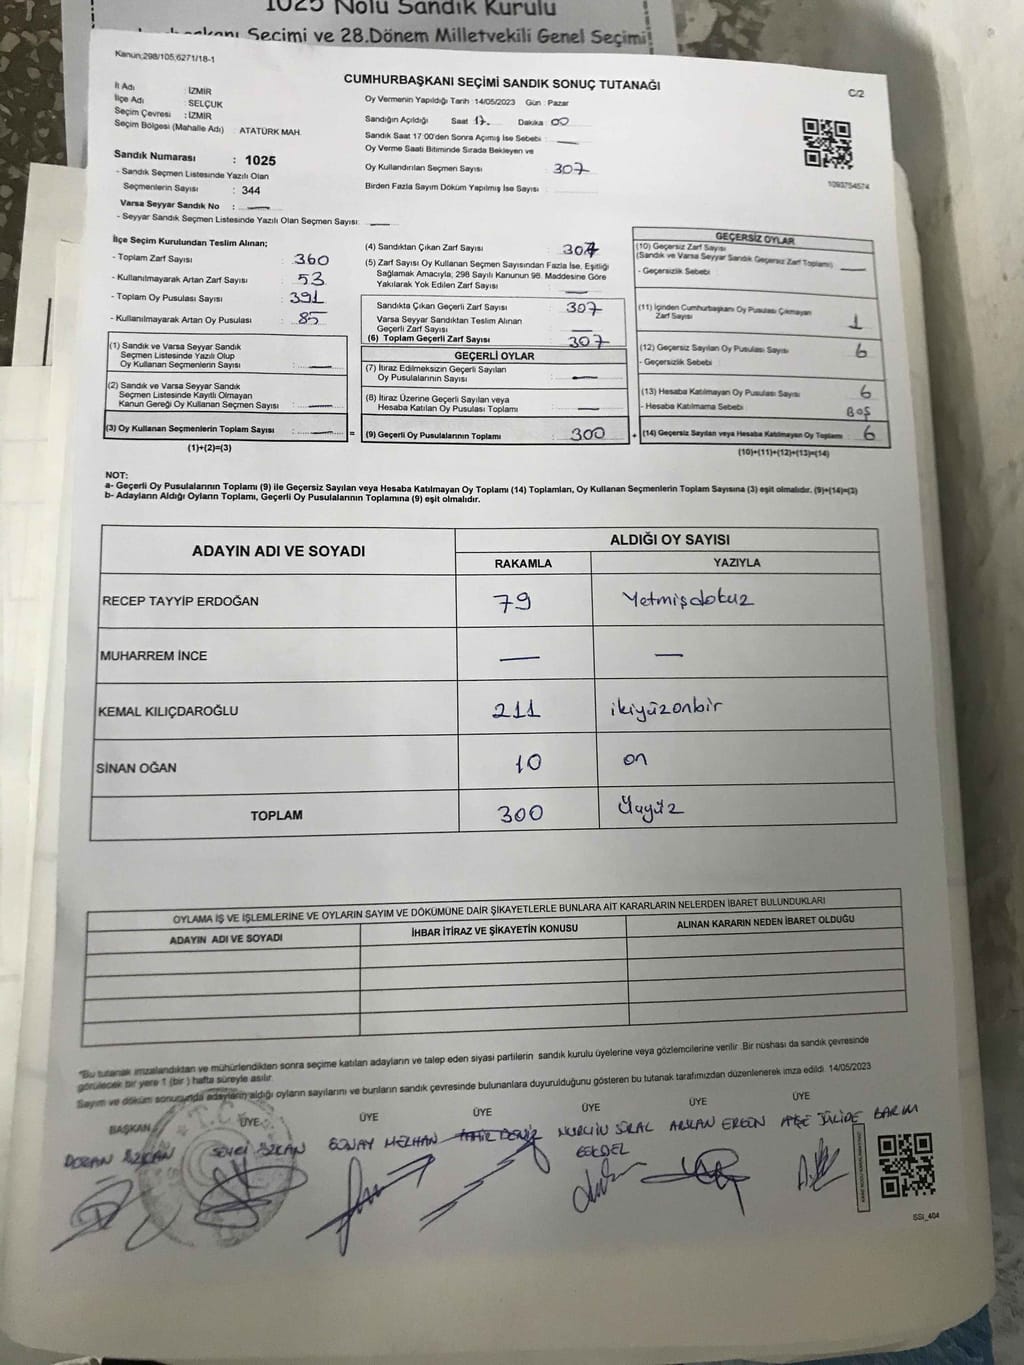 1025 Nolu Sandık Kurulu
Seçimi ve 28.Dönem Milletvekili Genel Seçimi
Kanun;298/105,6271/18-1
CUMHURBAŞKANI SEÇİMİ SANDIK SONUÇ TUTANAĞI
C/2
İl Adı : İZMİR
İlçe Adı : SELÇUK
Seçim Çevresi : İZMİR
Seçim Bölgesi (Mahalle Adı) : ATATÜRK MAH.
Sandık Numarası : 1025
- Sandık Seçmen Listesinde Yazılı Olan
Seçmenlerin Sayısı : 344
Varsa Seyyar Sandık No : —
- Seyyar Sandık Seçmen Listesinde Yazılı Olan Seçmen Sayısı: —
Oy Vermenin Yapıldığı Tarih : 14/05/2023 Gün : Pazar
Sandığın Açıldığı Saat 17. Dakika 00
Sandık Saat 17:00'den Sonra Açımış İse Sebebi : —
Oy Verme Saati Bitiminde Sırada Bekleyen ve
Oy Kullandırılan Seçmen Sayısı : 307
Birden Fazla Sayım Döküm Yapılmış İse Sayısı :
1093754574
İlçe Seçim Kurulundan Teslim Alınan;
- Toplam Zarf Sayısı : 360
- Kullanılmayarak Artan Zarf Sayısı : 53
- Toplam Oy Pusulası Sayısı : 391
- Kullanılmayarak Artan Oy Pusulası : 85
(1) Sandık ve Varsa Seyyar Sandık
Seçmen Listesinde Yazılı Olup
Oy Kullanan Seçmenlerin Sayısı : —
(2) Sandık ve Varsa Seyyar Sandık
Seçmen Listesinde Kayıtlı Olmayan
Kanun Gereği Oy Kullanan Seçmen Sayısı : —
(3) Oy Kullanan Seçmenlerin Toplam Sayısı : —
(1)+(2)=(3)
=
(4) Sandıktan Çıkan Zarf Sayısı : 307
(5) Zarf Sayısı Oy Kullanan Seçmen Sayısından Fazla İse, Eşitliği
Sağlamak Amacıyla; 298 Sayılı Kanunun 98. Maddesine Göre
Yakılarak Yok Edilen Zarf Sayısı : —
Sandıkta Çıkan Geçerli Zarf Sayısı : 307
Varsa Seyyar Sandıktan Teslim Alınan
Geçerli Zarf Sayısı : —
(6) Toplam Geçerli Zarf Sayısı : 307
GEÇERLİ OYLAR
(7) İtiraz Edilmeksizin Geçerli Sayılan
Oy Pusulalarının Sayısı : —
(8) İtiraz Üzerine Geçerli Sayılan veya
Hesaba Katılan Oy Pusulası Toplamı : —
(9) Geçerli Oy Pusulalarının Toplamı : 300
+
GEÇERSİZ OYLAR
(10) Geçersiz Zarf Sayısı
(Sandık ve Varsa Seyyar Sandık Geçersiz Zarf Toplamı) : —
- Geçersizlik Sebebi :
(11) İçinden Cumhurbaşkanı Oy Pusulası Çıkmayan
Zarf Sayısı : 1
(12) Geçersiz Sayılan Oy Pusulası Sayısı : 6
- Geçersizlik Sebebi :
(13) Hesaba Katılmayan Oy Pusulası Sayısı : 6
- Hesaba Katılmama Sebebi : BOŞ
(14) Geçersiz Sayılan veya Hesaba Katılmayan Oy Toplamı : 6
(10)+(11)+(12)+(13)=(14)
NOT:
a- Geçerli Oy Pusulalarının Toplamı (9) ile Geçersiz Sayılan veya Hesaba Katılmayan Oy Toplamı (14) Toplamları, Oy Kullanan Seçmenlerin Toplam Sayısına (3) eşit olmalıdır. (9)+(14)=(3)
b- Adayların Aldığı Oyların Toplamı, Geçerli Oy Pusulalarının Toplamına (9) eşit olmalıdır.
ADAYIN ADI VE SOYADI ALDIĞI OY SAYISI
RAKAMLA YAZIYLA
RECEP TAYYİP ERDOĞAN 79 Yetmişdokuz
MUHARREM İNCE — —
KEMAL KILIÇDAROĞLU 211 ikiyüzonbir
SİNAN OĞAN 10 on
TOPLAM 300 Üçyüz
OYLAMA İŞ VE İŞLEMLERİNE VE OYLARIN SAYIM VE DÖKÜMÜNE DAİR ŞİKAYETLERLE BUNLARA AİT KARARLARIN NELERDEN İBARET BULUNDUKLARI
ADAYIN ADI VE SOYADI İHBAR İTİRAZ VE ŞİKAYETİN KONUSU ALINAN KARARIN NEDEN İBARET OLDUĞU
"Bu tutanak imzalandıktan ve mühürlendikten sonra seçime katılan adayların ve talep eden siyasi partilerin sandık kurulu üyelerine veya gözlemcilerine verilir .Bir nüshası da sandık çevresinde
görülecek bir yere 1 (bir ) hafta süreyle asılır.
Sayım ve döküm sonucunda adayların aldığı oyların sayılarını ve bunların sandık çevresinde bulunanlara duyurulduğunu gösteren bu tutanak tarafımızdan düzenlenerek imza edildi. 14/05/2023
BAŞKAN ÜYE ÜYE ÜYE ÜYE ÜYE ÜYE
ÖZKAN ÖZKAN DENİZ NURÇİN ERGÜN JÜLİDE BARIM
T.C.
SSI_404